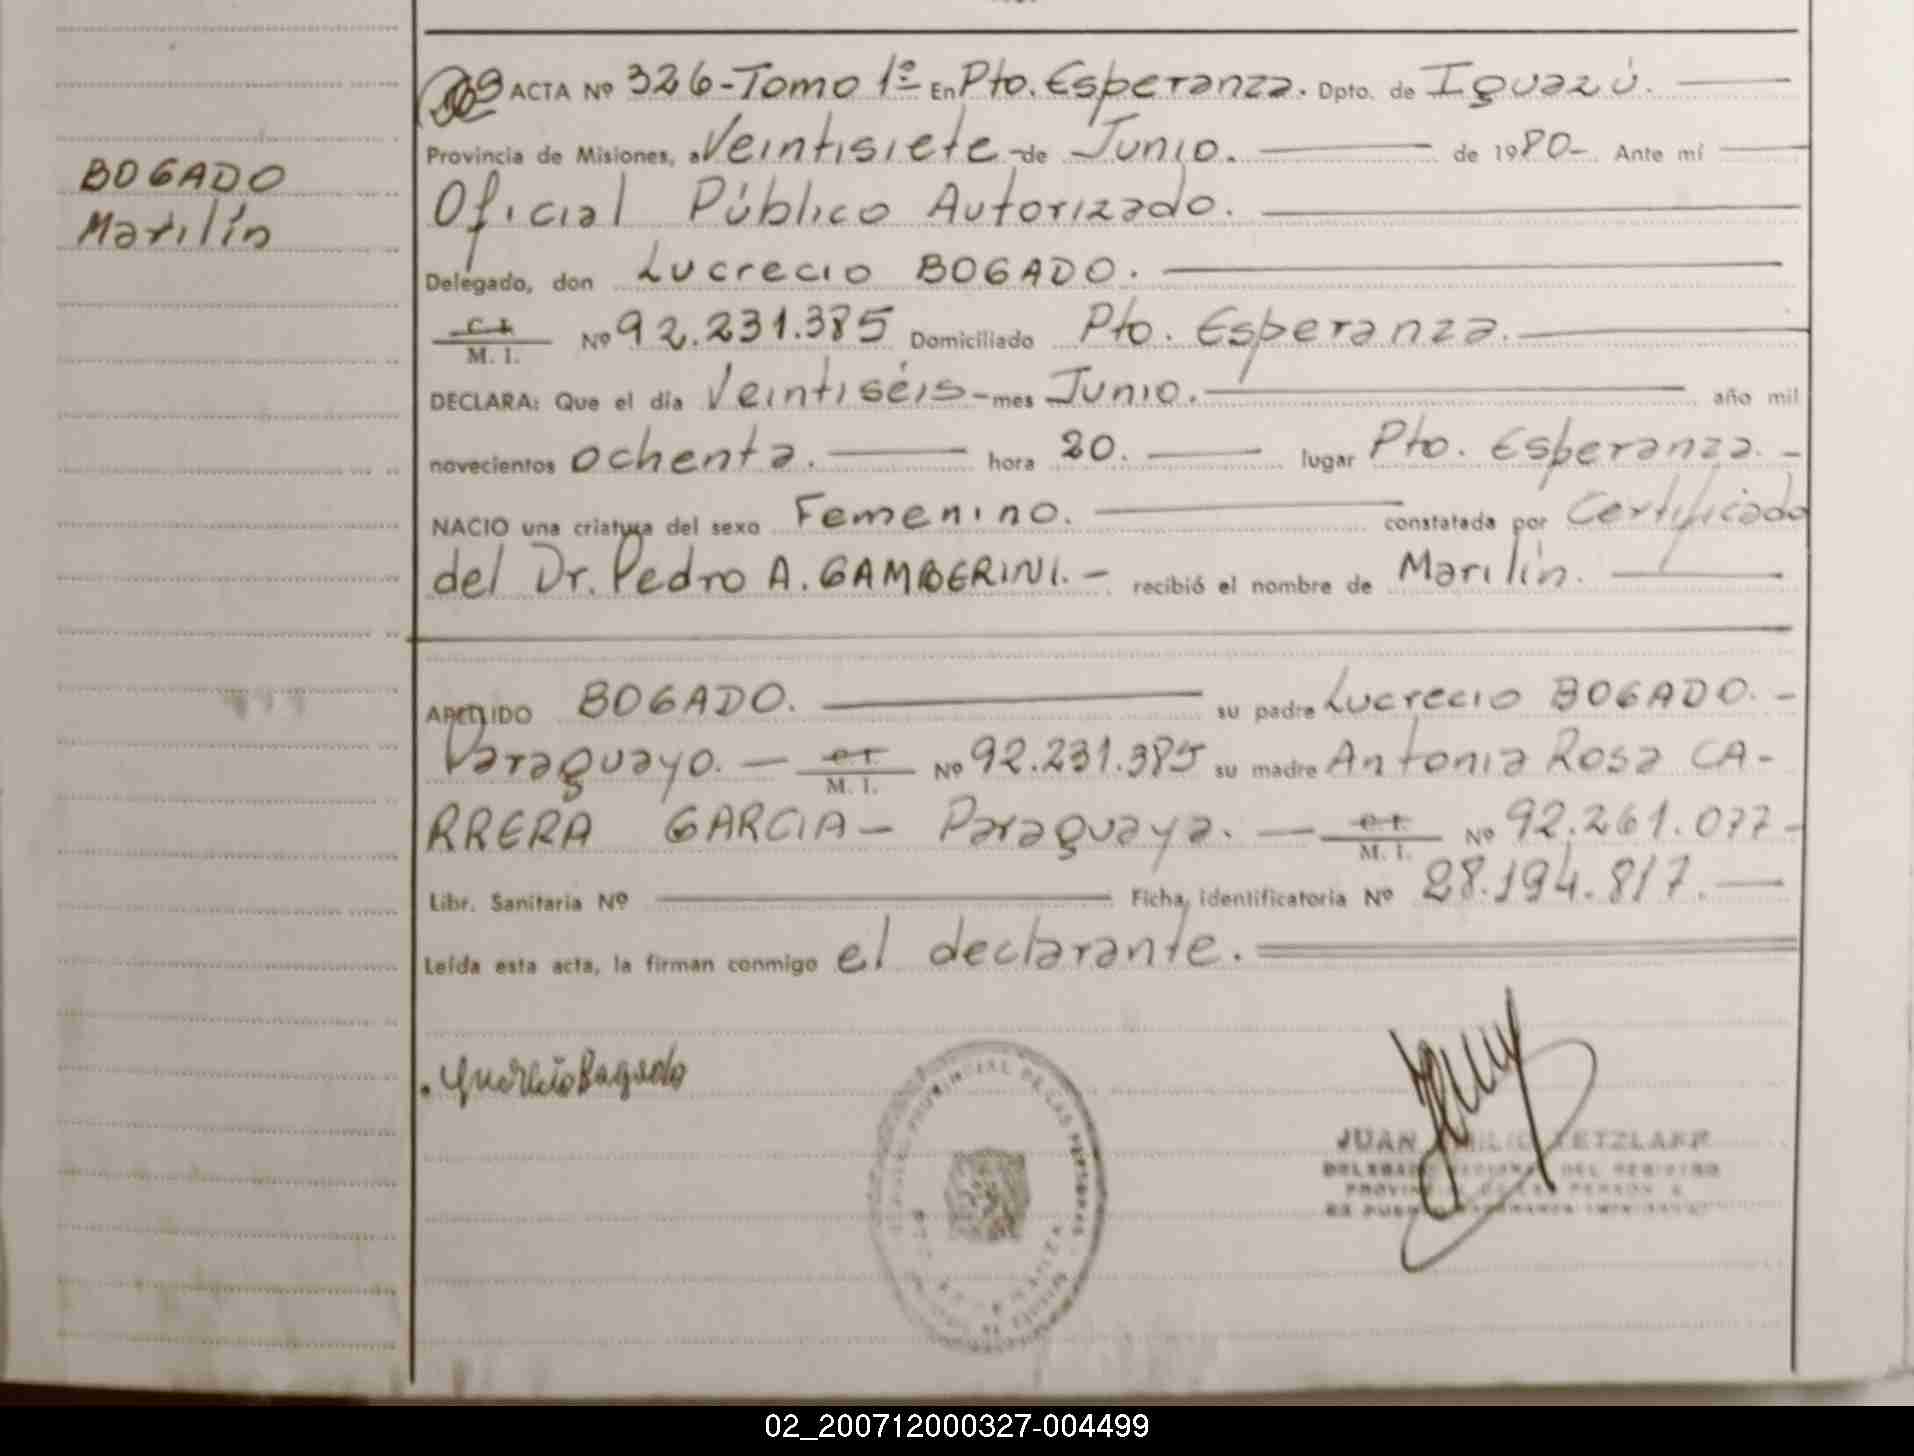 BOGADO
Marilín
ACTA Nº 326-Tomo 1º En Pto. Esperanza. Dpto. de Iguazú.
Provincia de Misiones, a Veintisiete - de Junio. de 1980-. Ante mí
Oficial Público Autorizado.
Delegado, don Lucrecio BOGADO.
C. I.
M. I. Nº 92.231.385 Domiciliado Pto. Esperanza.
DECLARA: Que el día Veintiséis - mes Junio. año mil
novecientos ochenta. hora 20. lugar Pto. Esperanza. -
NACIO una criatura del sexo Femenino. constatada por Certificado
del Dr. Pedro A. GAMBERINI. - recibió el nombre de Marilín.
APELLIDO BOGADO. su padre Lucrecio BOGADO. -
Paraguayo. - C. I.
M. I. Nº 92.231.385 su madre Antonia Rosa CA-
RRERA GARCIA - Paraguaya. - C. I.
M. I. Nº 92.261.077-
Libr. Sanitaria Nº Ficha identificatoria Nº 28.194.817.
Leída esta acta, la firman conmigo el declarante.
JUAN
02_200712000327-004499